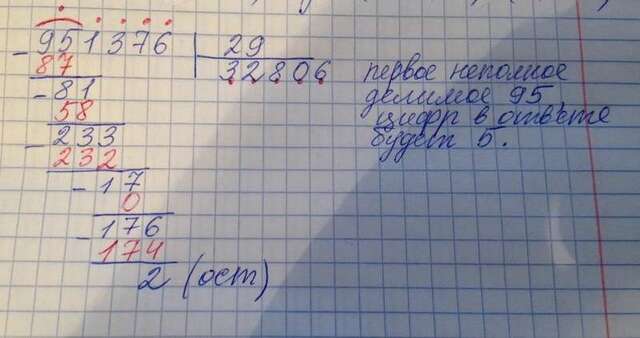 951376 29
87 32806
81
58
233
232
17
0
176
174
2 (ост)
первое неполное
делимое 95,
цифр в ответе
будет 5.